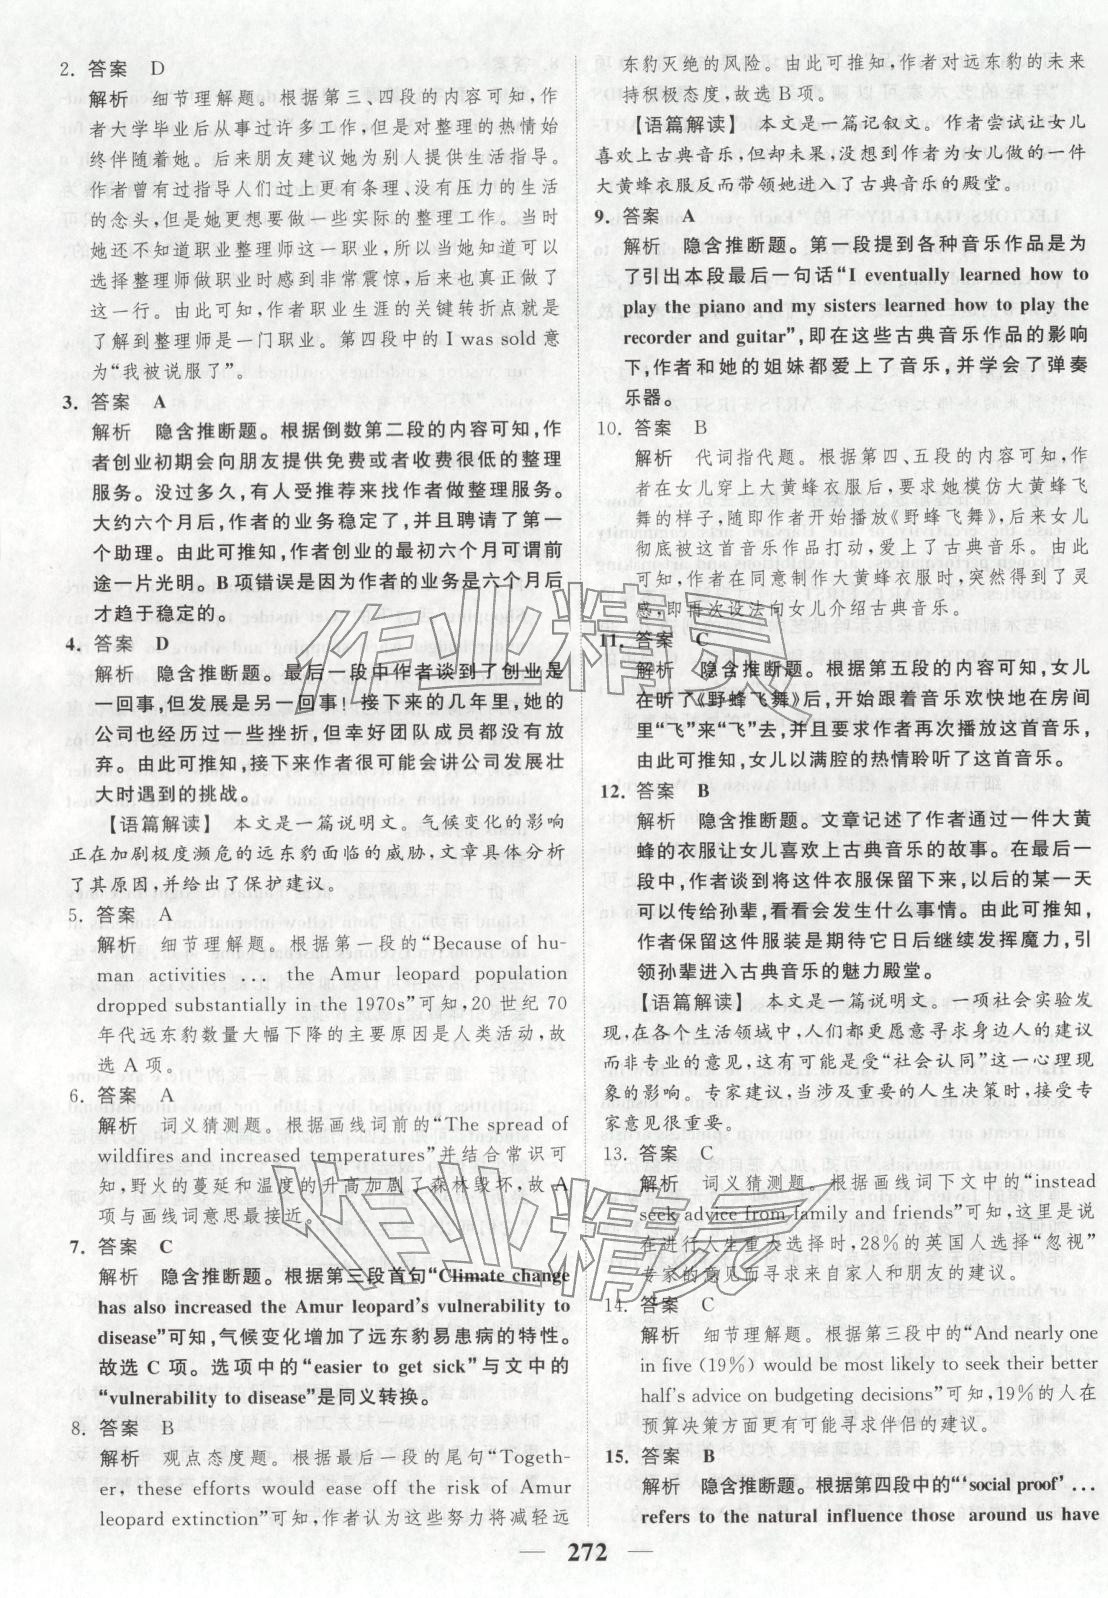 2. 答案　D
解析　细节理解题。根据第三、四段的内容可知，作
者大学毕业后从事过许多工作，但是对整理的热情始
终伴随着她。后来朋友建议她为别人提供生活指导。
作者曾有过指导人们过上更有条理、没有压力的生活
的念头，但是她更想要做一些实际的整理工作。当时
她还不知道职业整理师这一职业，所以当她知道可以
选择整理师做职业时感到非常震惊，后来也真正做了
这一行。由此可知，作者职业生涯的关键转折点就是
了解到整理师是一门职业。第四段中的 I was sold 意
为“我被说服了”。
3. 答案　A
解析　隐含推断题。根据倒数第二段的内容可知，作
者创业初期会向朋友提供免费或者收费很低的整理
服务。没过多久，有人受推荐来找作者做整理服务。
大约六个月后，作者的业务稳定了，并且聘请了第一
个助理。由此可推知，作者创业的最初六个月可谓前
途一片光明。B 项错误是因为作者的业务是六个月后
才趋于稳定的。
4. 答案　D
解析　隐含推断题。最后一段中作者谈到了创业是
一回事，但发展是另一回事！接下来的几年里，她的
公司也经历过一些挫折，但幸好团队成员都没有放
弃。由此可推知，接下来作者很可能会讲公司发展壮
大时遇到的挑战。
【语篇解读】　本文是一篇说明文。气候变化的影响
正在加剧极度濒危的远东豹面临的威胁，文章具体分析
了其原因，并给出了保护建议。
5. 答案　A
解析　细节理解题。根据第一段的“Because of hu-
man activities ... the Amur leopard population
dropped substantially in the 1970s”可知，20 世纪 70
年代远东豹数量大幅下降的主要原因是人类活动，故
选 A 项。
6. 答案　A
解析　词义猜测题。根据画线词前的“The spread of
wildfires and increased temperatures”并结合常识可
知，野火的蔓延和温度的升高加剧了森林毁坏，故 A
项与画线词意思最接近。
7. 答案　C
解析　隐含推断题。根据第三段首句“Climate change
has also increased the Amur leopard’s vulnerability to
disease”可知，气候变化增加了远东豹易患病的特性。
故选 C 项。选项中的“easier to get sick”与文中的
“vulnerability to disease”是同义转换。
8. 答案　B
解析　观点态度题。根据最后一段的尾句“Togeth-
er, these efforts would ease off the risk of Amur
leopard extinction”可知，作者认为这些努力将减轻远
东豹灭绝的风险。由此可推知，作者对远东豹的未来
持积极态度，故选 B 项。
【语篇解读】　本文是一篇记叙文。作者尝试让女儿
喜欢上古典音乐，但却未果，没想到作者为女儿做的一件
大黄蜂衣服反而带领她进入了古典音乐的殿堂。
9. 答案　A
解析　隐含推断题。第一段提到各种音乐作品是为
了引出本段最后一句话“I eventually learned how to
play the piano and my sisters learned how to play the
recorder and guitar”，即在这些古典音乐作品的影响
下，作者和她的姐妹都爱上了音乐，并学会了弹奏
乐器。
10. 答案　B
解析　代词指代题。根据第四、五段的内容可知，
作者在女儿穿上大黄蜂衣服后，要求她模仿大黄蜂飞
舞的样子，随即作者开始播放《野蜂飞舞》，后来女儿
彻底被这首音乐作品打动，爱上了古典音乐。由此
可知，作者在同意制作大黄蜂衣服时，突然得到了灵
感，即再次设法向女儿介绍古典音乐。
11. 答案　C
解析　隐含推断题。根据第五段的内容可知，女儿
在听了《野蜂飞舞》后，开始跟着音乐欢快地在房间
里“飞”来“飞”去，并且要求作者再次播放这首音乐，
由此可推知，女儿以满腔的热情聆听了这首音乐。
12. 答案　B
解析　隐含推断题。文章记述了作者通过一件大黄
蜂的衣服让女儿喜欢上古典音乐的故事。在最后一
段中，作者谈到将这件衣服保留下来，以后的某一天
可以传给孙辈，看看会发生什么事情。由此可推知，
作者保留这件服装是期待它日后继续发挥魔力，引
领孙辈进入古典音乐的魅力殿堂。
【语篇解读】　本文是一篇说明文。一项社会实验发
现，在各个生活领域中，人们都更愿意寻求身边人的建议
而非专业的意见，这有可能是受“社会认同”这一心理现
象的影响。专家建议，当涉及重要的人生决策时，接受专
家意见很重要。
13. 答案　C
解析　词义猜测题。根据画线词下文中的“instead
seek advice from family and friends”可知，这里是说
在进行人生重大选择时，28％的英国人选择“忽视”
专家的意见而寻求来自家人和朋友的建议。
14. 答案　C
解析　细节理解题。根据第三段中的“And nearly one
in five (19％) would be most likely to seek their better
half’s advice on budgeting decisions”可知，19％的人在
预算决策方面更有可能寻求伴侣的建议。
15. 答案　B
解析　隐含推断题。根据第四段中的“‘social proof’...
refers to the natural influence those around us have
— 272 —
作业精灵
作业精灵